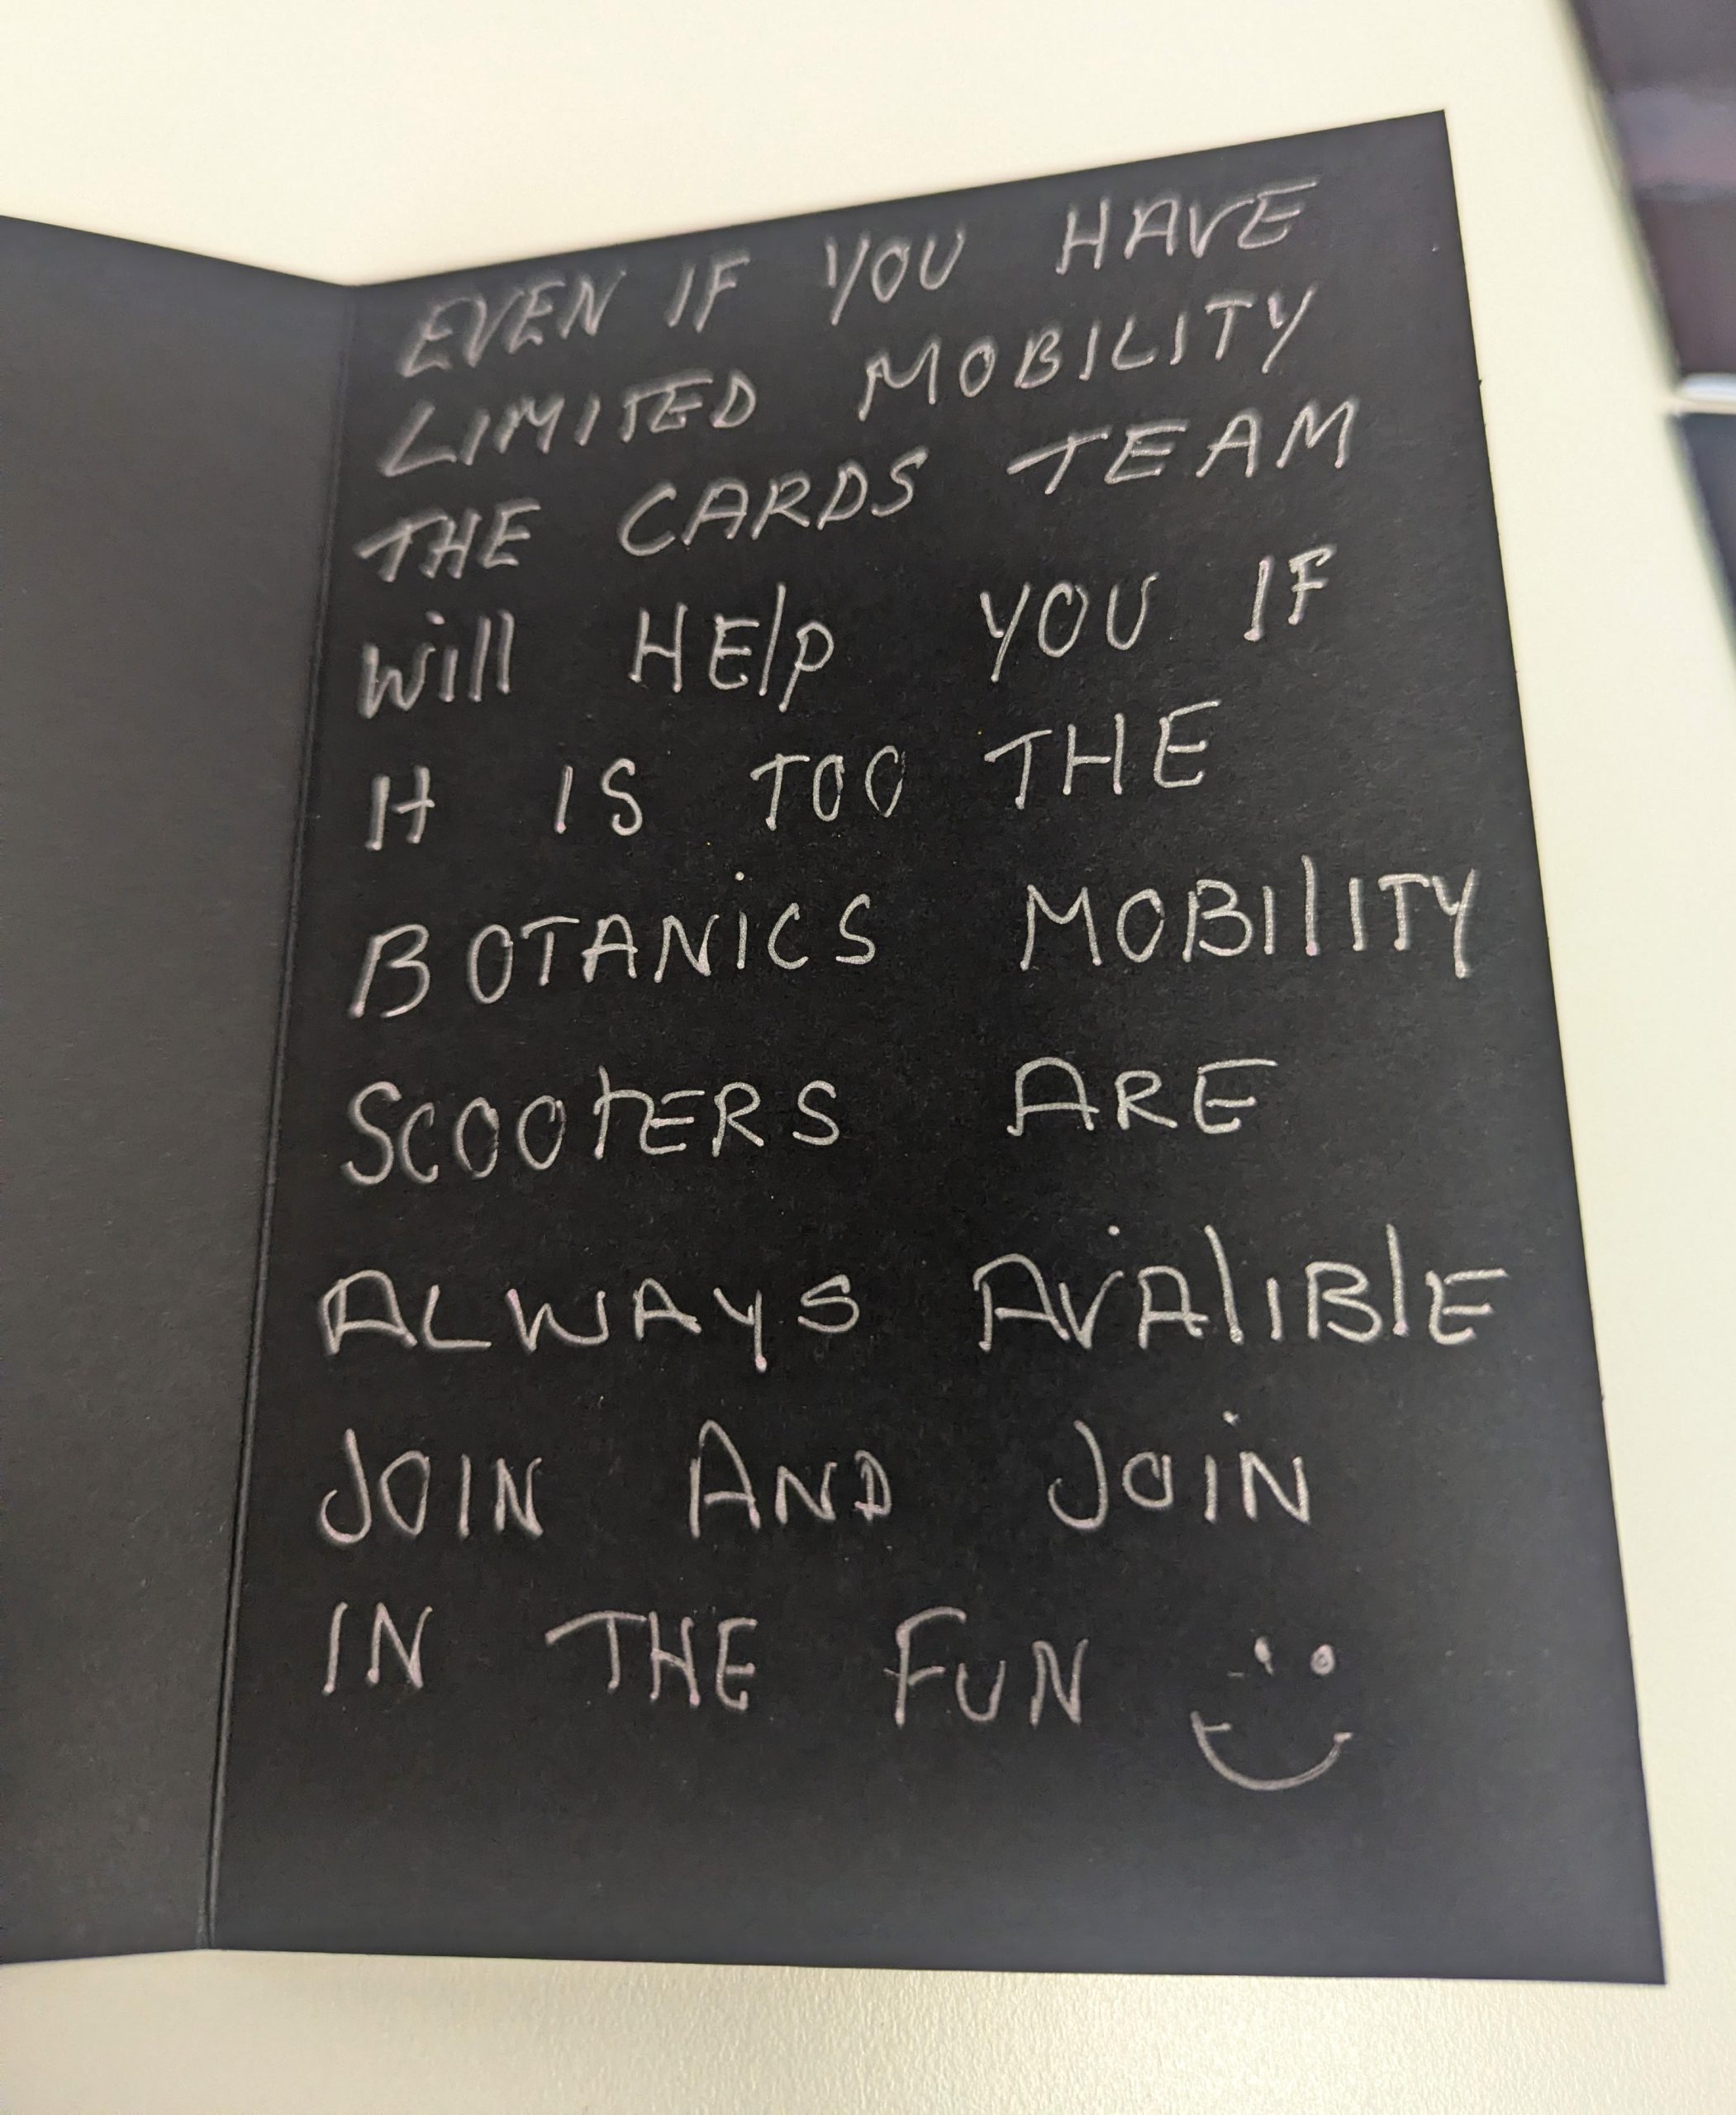 EVEN IF YOU HAVE
LIMITED MOBILITY
THE CARDS TEAM
Will HElp YOU IF
It IS TOO THE
BOTANiCS MOBIlITY
SCOOtERS ARE
ALWAYS AVAlIBlE
JOIN AND JOiN
IN THE FUN